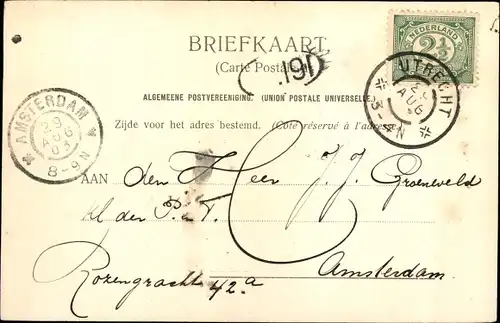 NEDERLAND
2½
BRIEFKAART
(Carte Postale)
191
ALGEMEENE POSTVEREENIGING. (UNION POSTALE UNIVERSELLE.)
Zijde voor het adres bestemd. (Côté réservé à l'adresse.)
UTRECHT
AUG
3-4N
AMSTERDAM
29
AUG
03
8-9N
AAN den Heer J. J. Groeneveld
kl der P. & T.
Amsterdam.
Rozengracht 42a